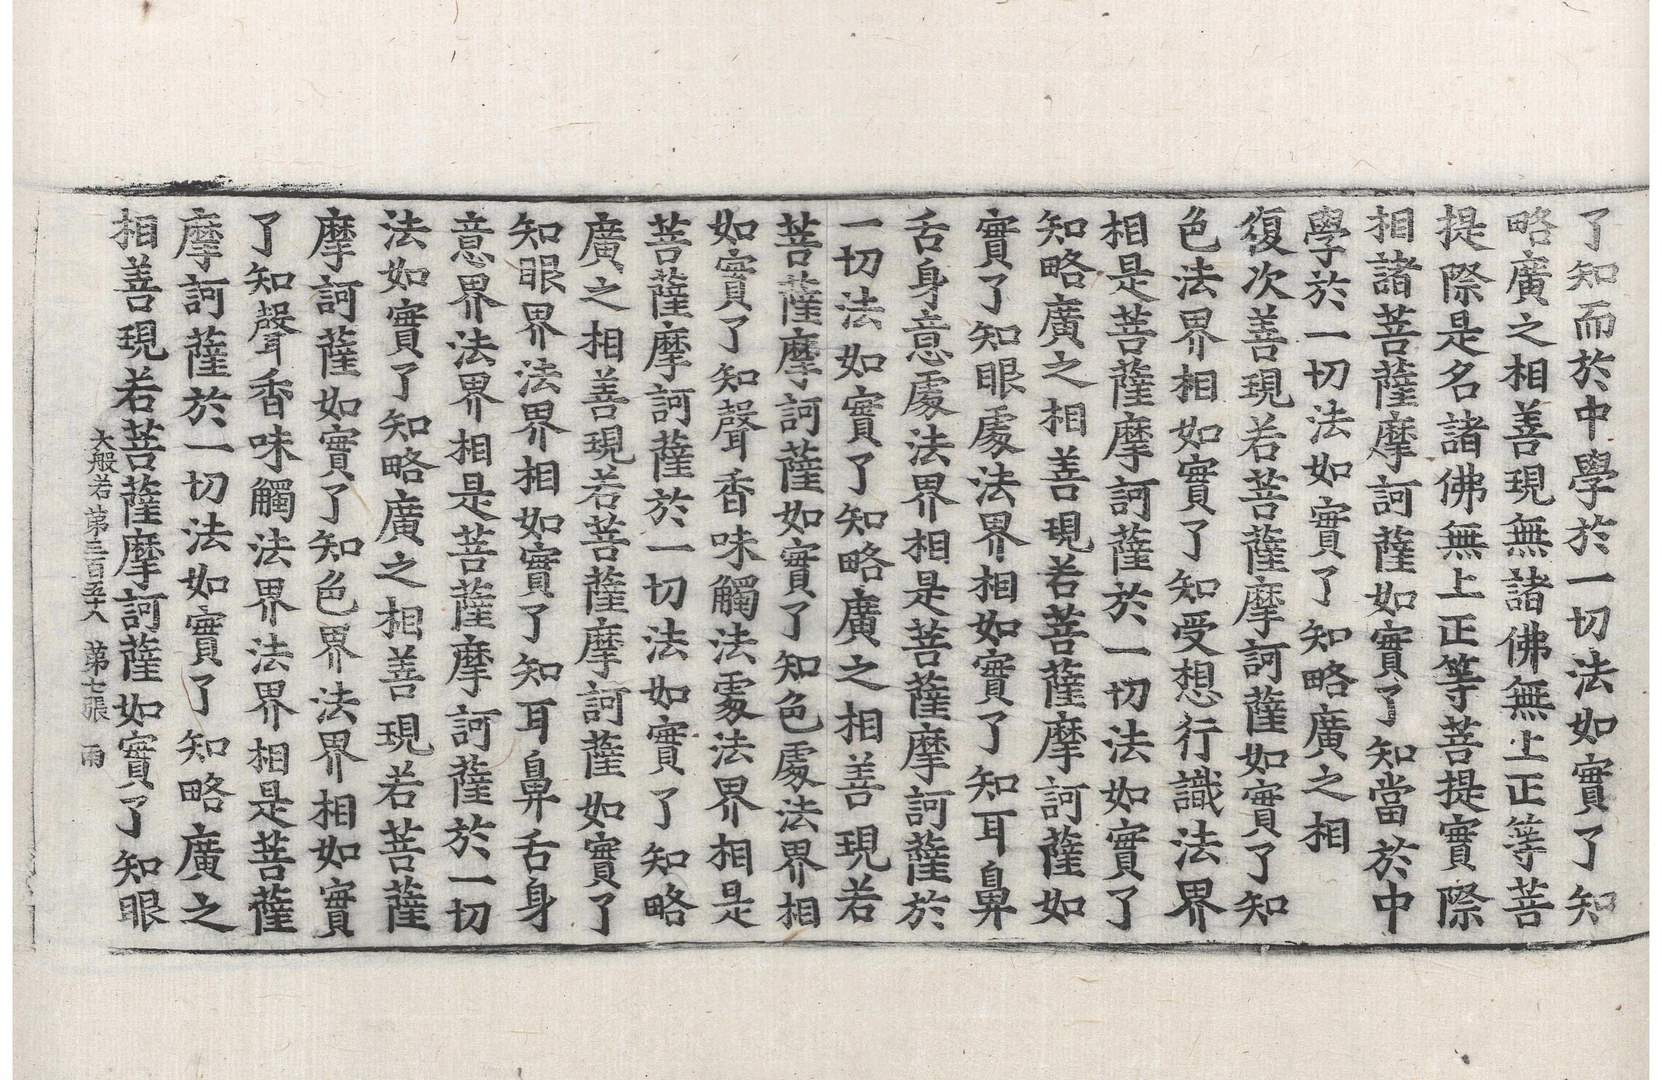 了知而於中學於一切法如實了知
略廣之相善現無諸佛無上正等菩
提際是名諸佛無上正等菩提實際
相諸菩薩摩訶薩如實了知當於中
學於一切法如實了知略廣之相
復次善現若菩薩摩訶薩如實了知
色法界相如實了知受想行識法界
相是菩薩摩訶薩於一切法如實了
知略廣之相善現若菩薩摩訶薩如
實了知眼處法界相如實了知耳鼻
舌身意處法界相是菩薩摩訶薩於
一切法如實了知略廣之相善現若
菩薩摩訶薩如實了知色處法界相
如實了知聲香味觸法處法界相是
菩薩摩訶薩於一切法如實了知略
廣之相善現若菩薩摩訶薩如實了
知眼界法界相如實了知耳鼻舌身
意界法界相是菩薩摩訶薩於一切
法如實了知略廣之相善現若菩薩
摩訶薩如實了知色界法界相如實
了知聲香味觸法界法界相是菩薩
摩訶薩於一切法如實了知略廣之
相善現若菩薩摩訶薩如實了知眼
大般若第三百五十八 第七張 雨